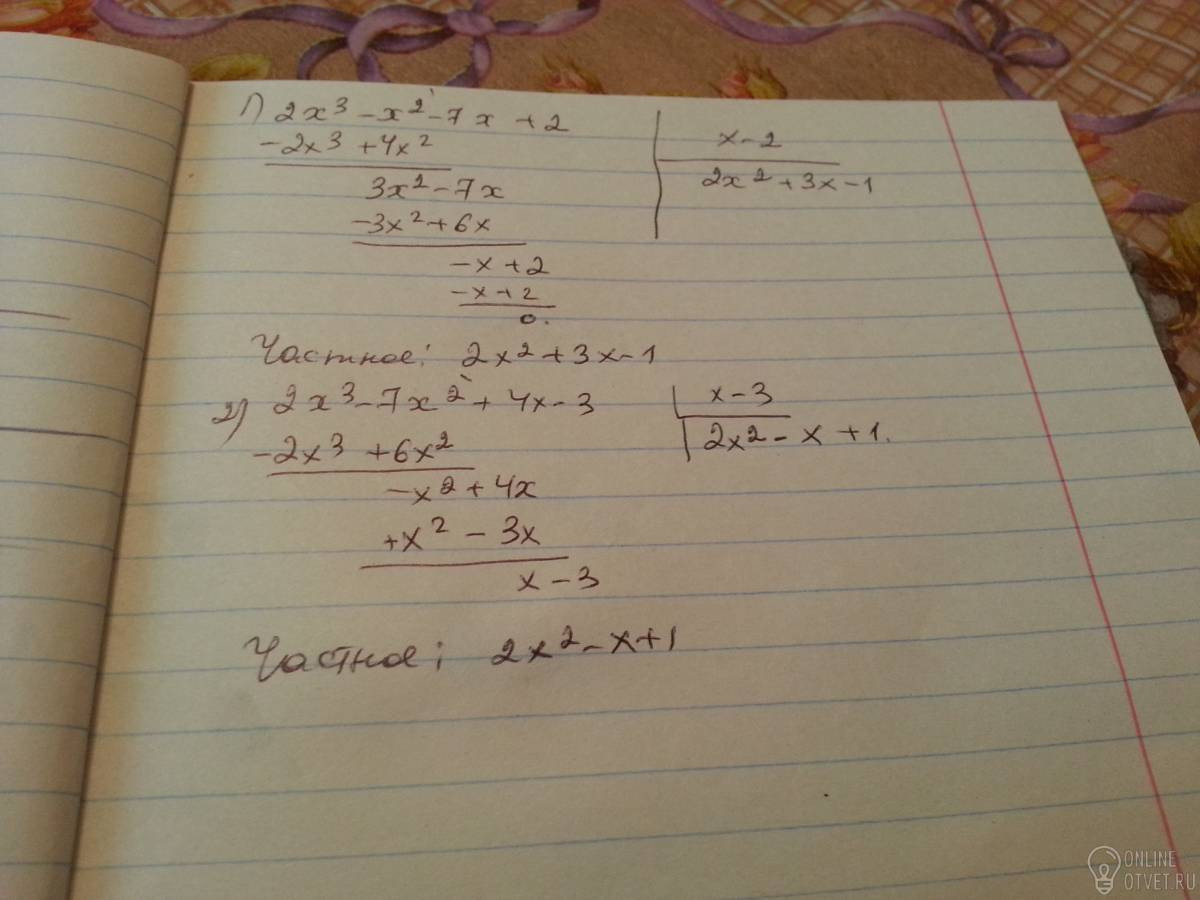 1) 2x³ - x² - 7x + 2
x - 2
-2x³ + 4x²
2x² + 3x - 1
3x² - 7x
-3x² + 6x
-x + 2
-x + 2
0.
Частное: 2x² + 3x - 1
2) 2x³ - 7x² + 4x - 3
x - 3
-2x³ + 6x²
2x² - x + 1.
-x² + 4x
+x² - 3x
x - 3
Частное: 2x² - x + 1
ONLINE
OTVET.RU